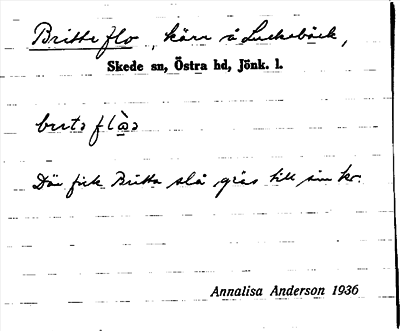 Britta flo, kärr å Luckebäck,
Skede sn, Östra hd, Jönk. l.
Där fick Britta slå gräs till sin ko.
Annalisa Anderson 1936